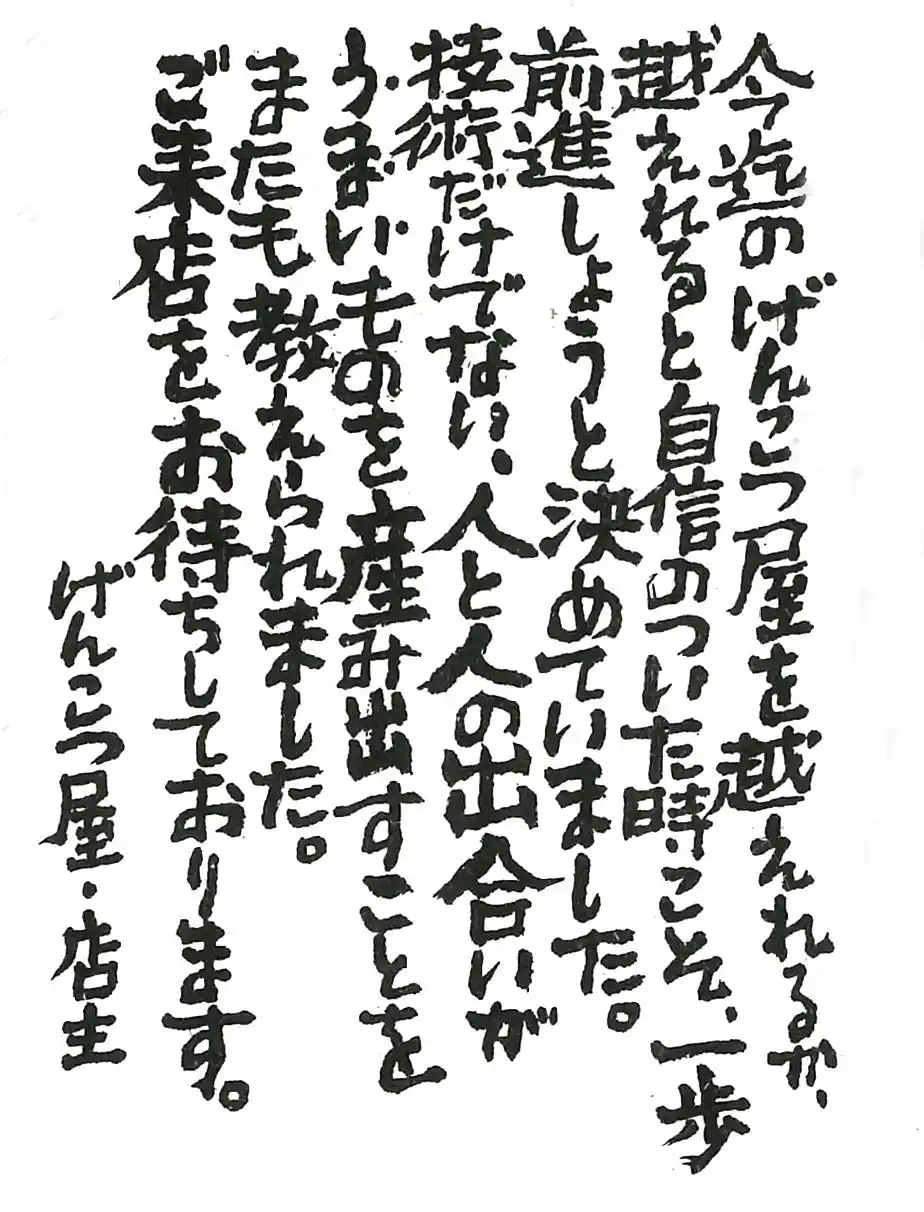 今迄のげんこつ屋を越えれるか、
越えれると自信のついた時こそ、一歩
前進しようと決めていました。
技術だけでない、人と人の出合いが
うまいものを産み出すことを
またも教えられました。
ご来店をお待ちしております。
げんこつ屋・店主